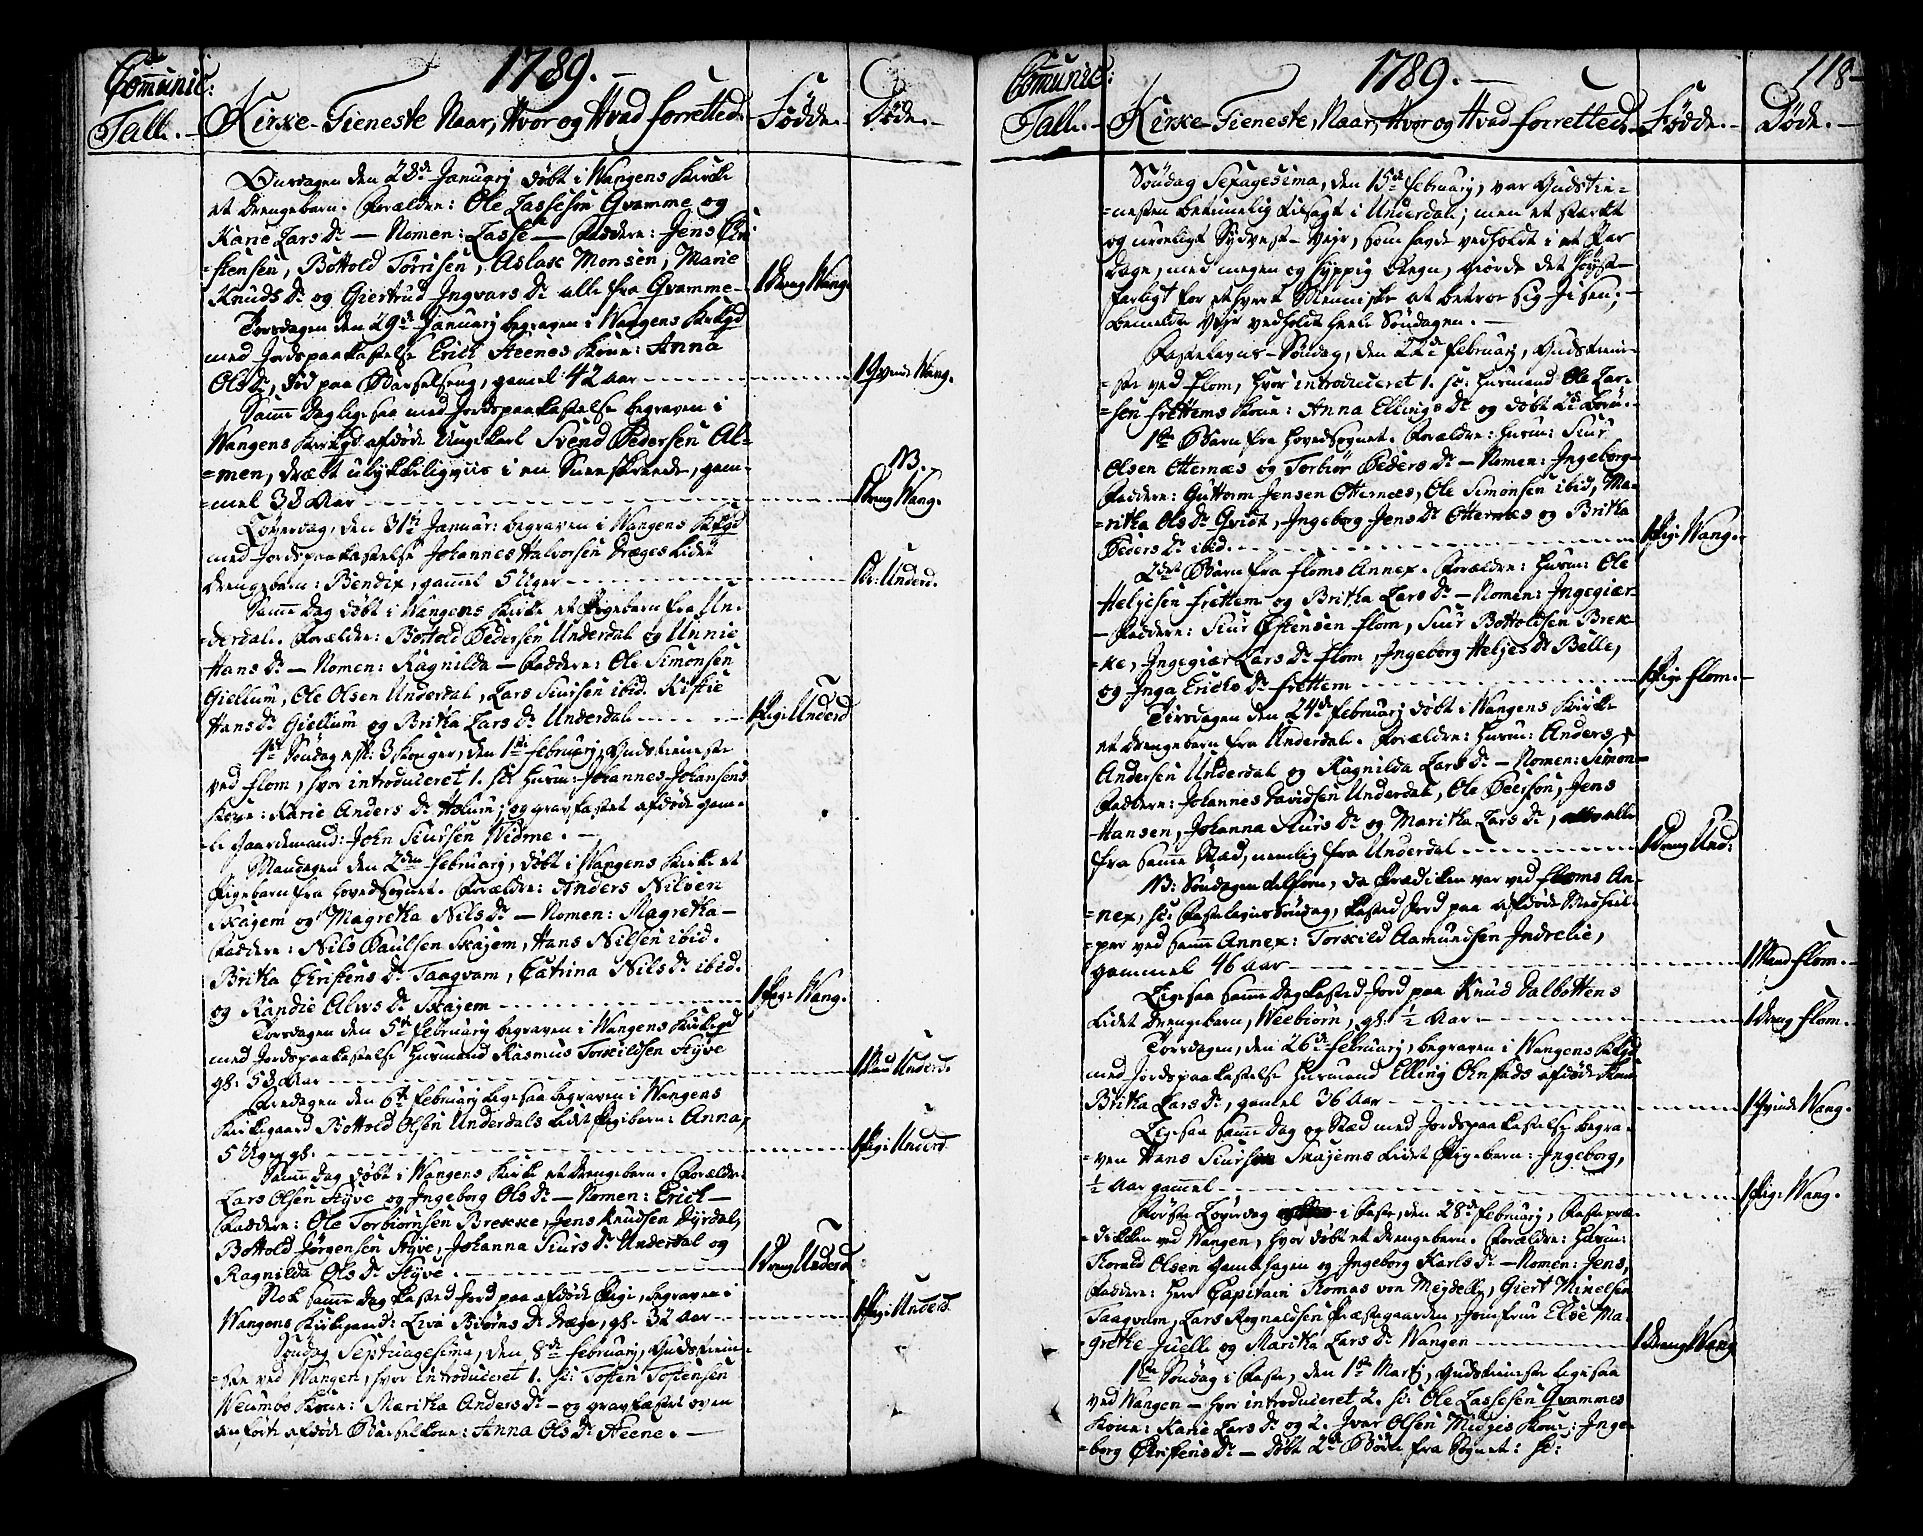 Comunic: 1789.
Tall. Kirke-Tieneste Naar, Hvor og Hvad forretted. Fødde. Døde.
Onsdagen den 28de Januarj døbt i Wangens Kirke
et Drengebarn. Forældre: Ole Lassesøn Gvamme og
Karie Lars Dr — Nomen: Lasse — Faddere: Jens Chri
=stensen, Bottold Torrisen, Aslak Monsen, Marie
Knuds Dr og Giertrud Ingvars Dr alle fra Gvamme- 1 Dreng Wang.
Torsdagen den 29de Januarj begraven i Wangens Kirkgd
med Jordspaakastelse Erich Steenes Kone: Anna
Ols Dr, død paa Barselseng, gamel 42 Aar 1 Qvinde Wang.
Samme Dag ligesaa med Jordspaakastelse begraven i
Wangens Kirkgd afdøde Unge Karl Svend Pedersen Al-
=men, dræbt ulykkeligviis i en Sneeskreede, gam- NB.
=mel 38 Aar 1 Dreng Wang.
Løverdag, den 31te Januar: begraven i Wangens Kirkgd
med Jordspaakastelse Johannes Halvorsen Dræges lidet
Drengebarn: Bendix, gammel 5 Uger 1 Dr: Underd.
Samme Dag døbt i Wangens Kirke et Pigebarn fra Un-
=derdal. Forældre: Bottold Pedersen Underdal og Unnie
Hans Dr — Nomen: Ragnilda — Faddere: Ole Simonsen
Giellum, Ole Olsen Underdal, Lars Siursen ibid. Kistie
Hans Dr Giellum og Britha Lars Dr Underdal 1 Pige Underd
4de Søndag eft: 3 Konger, den 1ste Februarj, Gudstieneste
ved Flom, hvor introduceret 1. sc: Huusm: Johannes Johansens
Kone: Karie Anders Dr Holum; og gravfæstet afdøde gam-
=le Gaardemand: John Siursen Widme.
Mandagen den 2den Februarj, døbt i Wangens Kirke et
Pigebarn fra HovedSognet. Forældre: Anders Nilsen
Skajem og Magretha Nils Dr — Nomen: Magretha —
Faddere: Nils Paulsen Skajem, Hans Nilsen ibid.
Britha Christens Dr Taagvam, Catrina Nils Dr ibid.
og Randie Alvs Dr Skajem 1 Pige Wang.
Torsdagen den 5te Februarj begraven i Wangens Kirkgd
med Jordspaakastelse Huusmand Rasmus Torkildsen Styve
gl. 58 Aar 1 Man Underd.
Fredagen den 6te Februarj ligesaa begraven i Wangens
Kirkegaard Bottold Olsen Underdals lidet Pigebarn: Anna,
5 Uger gl. 1 Pige Underd.
Samme Dag døbt i Wangens Kirke et Drengebarn. Forældre:
Lars Olsen Styve og Ingeborg Ols Dr — Nomen: Erich —
Faddere: Ole Torbiørnsen Brekke, Jens Knudsen Dyrdal,
Bottold Jørgensen Styve, Johanna Siurs Dr Underdal og
Ragnilda Ols Dr Styve. 1 Dreng Underd
Nok samme Dag kasted Jord paa afdøde Pige, begraven i
Wangens Kirkegaard: Liva Biørns Dr Dræge, gl. 32 Aar 1 Pige Underd.
Søndag Septuagesima, den 8de Februarj, Gudstiene-
=ste ved Wangen, hvor introduceret 1. sc: Tosten Tostensen
Weumbs Kone: Maritha Anders Dr — og gravfæstet oven
anførte afdøde Barselkone: Anna Ols Dr Steene. —
Comunic: 1789. 118
Tall. Kirke-Tieneste, Naar, Hvor og Hvad forretted. Fødde. Døde.
Søndag Sexagesima, den 15de Februarj, var Gudstie-
=nesten betimelig tilsagt i Underdal; men et stærkt
og uroeligt Sydvest-Vejr, som havde vedholdt i et Par
Dage, med megen og hyppig Regn, giorde det høyst-
farligt for et hvert Menniske at betroe sig Isen;
bemeldte Vejr vedholdt heele Søndagen.
Fastelavns-Søndag, den 22de Februarj, Gudstiene-
=ste ved Flom, hvor introduceret 1. sc: Huusmand Ole Lar-
=sen Frettems Kone: Anna Ellings Dr og døbt 2de Børn.
1ste Barn fra HovedSognet. Forældre: Huusm: Siur
Olsen Otternæs og Torbiør Peders Dr — Nomen: Ingeborg
Faddere: Guttorm Jensen Otternæs, Ole Simonsen ibid, Ma-
=ritha Ols Dr Qvidt, Ingeborg Jens Dr Otternæs og Britha
Peders Dr ibid. 1 Pige Wang.
2det Barn fra Floms Annex. Forældre: Huusm: Ole
Heljesen Frettem og Britha Lars Dr — Nomen: Ingegiær
— Faddere: Siur Estensen Flom, Siur Bottoldsen Brek-
=ke, Ingegiær Lars Dr Flom, Ingeborg Heljes Dr Bælle,
og Inga Erichs Dr Frettem 1 Pige Flom.
Tirsdagen den 24de Februarj døbt i Wangens Kirke
et Drengebarn fra Underdal. Forældre: Huusm: Anders
Andersen Underdal og Ragnilda Lars Dr — Nomen: Simon
Faddere: Johannes Davidsen Underdal, Ole Peersen, Jens
Hansen, Johanna Siurs Dr og Maritha Lars Dr, alle
fra samme Stæd, nemlig fra Underdal 1 Dreng Und:
NB: Søndagen tilforn, da Prædiken var ved Floms An-
=nex, sc: Fastelavns Søndag, kasted Jord paa afdøde Medhiel-
=per ved samme Annex: Torkild Aamundsen Indrelie,
gammel 46 Aar 1 Mand Flom.
Ligesaa samme Dag kasted Jord paa Knud Dalbottens
lidet Drengebarn, Weebiørn, gl. 1/2 Aar 1 Dreng Flom.
Torsdagen, den 26de Februarj, begraven i Wangens Kirkgd
med Jordspaakastelse Huusmand Elling Onstads afdøde Kone
Britha Lars Dr, gamel 36 Aar 1 Qvinde Wang.
Ligesaa samme Dag og Stæd med Jordspaakastelse begra-
=ven Hans Siursen Skajems lidet Pigebarn: Ingeborg,
1/2 Aar gammel 1 Pige Wang.
Første Løverdag i Faste, den 28de Februarj, Fastepræ-
=dikken ved Wangen, hvor døbt et Drengebarn. Forældre: Huusm:
Thorald Olsen Gamlehagen og Ingeborg Karls Dr — Nomen: Jens,
Faddere: Herr Capitain Thomas von Megdell, Giert Michelsen
Taagvam, Lars Rognaldsen Præstegaarden, Jomfrue Else Ma-
grethe Juell og Maritha Lars Dr Wangen 1 Dreng Wang
1ste Søndag i Faste, den 1ste Martj, Gudstieneste ligesaa
ved Wangen — hvor introduceret 2. sc: Ole Lassesen Gvammes
Kone: Karie Lars Dr og 2. Ivar Olsen Midjes Kone: Inge-
=borg Christens Dr — døbt 2de Børn fra Sognet: sc: